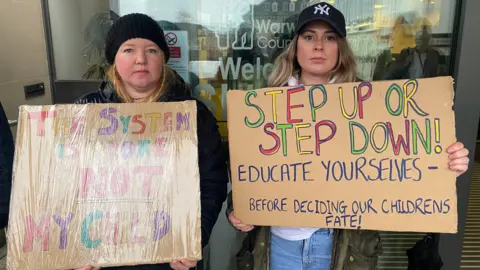 Warw
Cou
We
THE SYSTEM
IS BROKE
NOT
MY CHILD
STEP UP OR
STEP DOWN!
EDUCATE YOURSELVES -
BEFORE DECIDING OUR CHILDRENS
FATE!